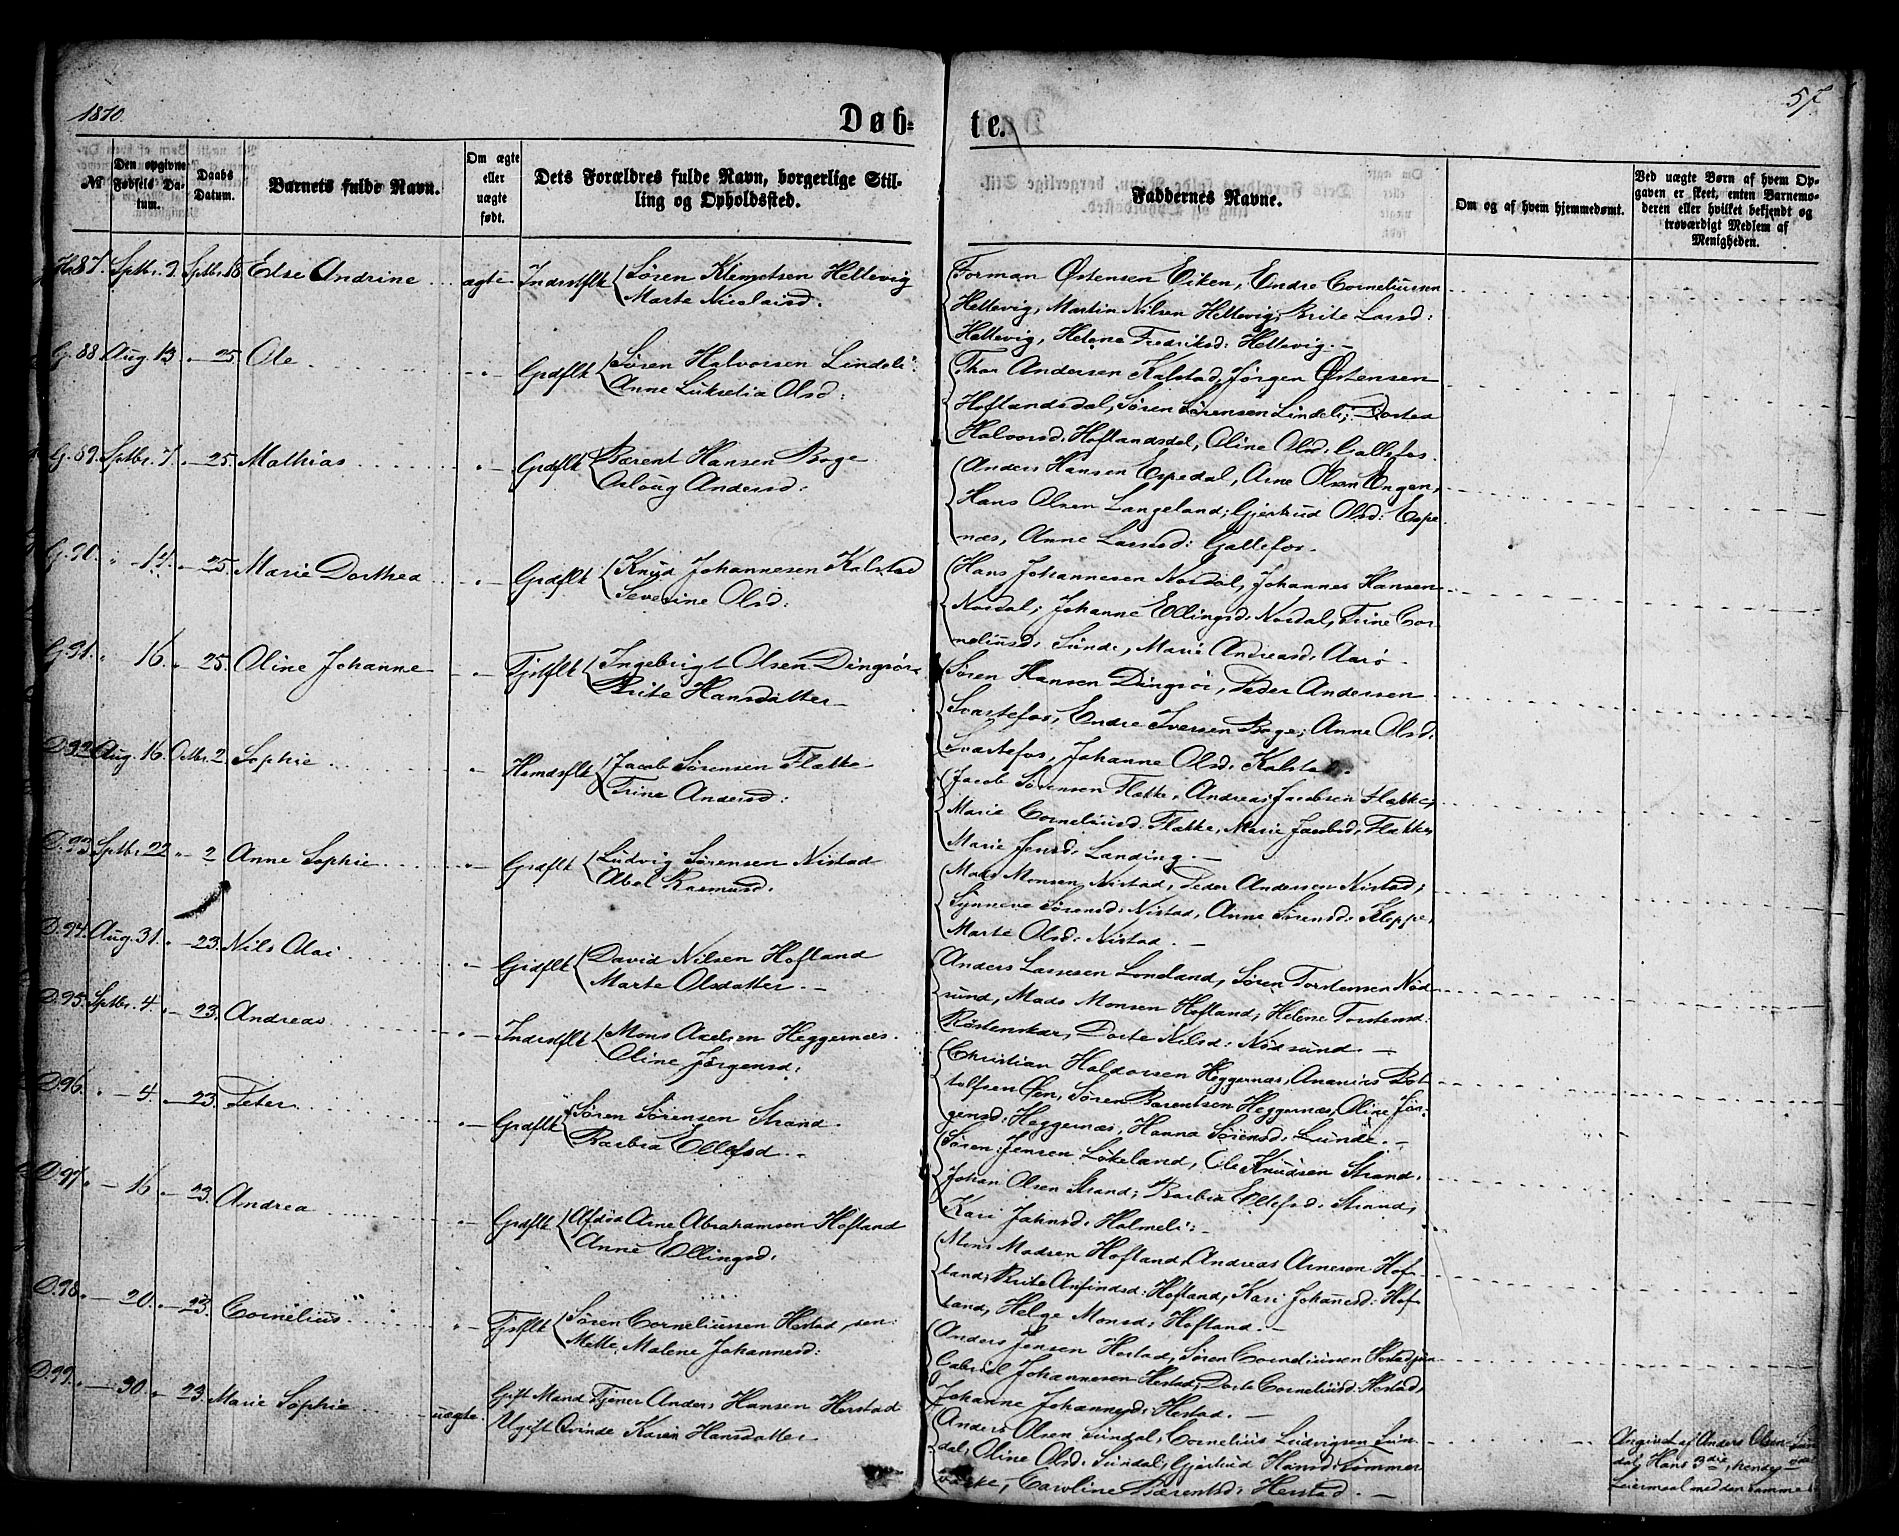 1870.
Døb=
te.
57
№
Den opgivne Fødsels Datum.
Daabs Datum.
Barnets fulde Navn.
Om ægte eller uægte født.
Dets Forældres fulde Navn, borgerlige Stilling og Opholdssted.
Faddernes Navne.
Om og af hvem hjemmedøbt.
Ved uægte Børn af hvem Opgaven er skeet, enten Barnemoderen eller hvilket bekjendt og troværdigt Medlem af Menigheden.
87. Sptbr. 9. Sptbr. 18 Else Andrine ægte Indrstflk Søren Klemetsen Hellevig
Marte Nicolaisd.
Forman Østensen Eiken, Endre Corneliussen
Hellevig, Martin Nilsen Hellevig, Brite Larsd:
Hellevig, Helene Fredriksd: Hellevig. —
G. 88. Aug. 13 " 25. Ole " Grdflk Søren Halvorsen Lindeli
Anne Lukretia Olsd:
Thor Andersen Kalstad, Jørgen Østensen
Hoflandsdal, Søren Sørensen Lindeli, Dortea
Halvorsd. Hoflandsdal, Oline Olsd: Gallefos.
G. 89. Sptbr. 7. " 25. Mathias " Grdflk Bærent Hansen Boge
Aslaug Andersd:
Anders Hansen Espedal, Arne Olsen Engen,
Hans Olsen Langeland, Gjertrud Olsd: Espe-
næs, Anne Larsd: Gallefos.
G. 90. " 14. " 25. Marie Dorthea " Grdflk Knud Johannesen Kalstad
Severine Olsd:
Hans Johannesen Nordal, Johannes Hansen
Nordal, Johanne Ellingsd. Nordal, Trine Cor-
neliusd. Sunde, Marie Andreasd. Aarø
G. 91. " 16. " 25. Oline Johanne " Tjstflk Ingebrigt Olsen Dingsør
Brite Hansdatter —
Søren Hansen Dingsør, Peder Andersen
Svartefos, Endre Iversen Boge, Anne Olsd:
Svartefos, Johanne Olsd: Kalstad.
D. 92. Aug. 16. Octbr. 2. Sophie " Hsmdsflk Jacob Sørensen Flække
Trine Andersd:
Jacob Sørensen Flække, Andreas Jacobsen Flække,
Marie Corneliusd. Flække, Marie Jacobsd. Flække,
Marie Jensd. Landing. —
D. 93. Sptbr. 22 " 2 Anne Sophie " Grdflk Ludvig Sørensen Nistad
Abel Rasmusd:
Mads Monsen Nistad, Peder Andersen Nistad,
Synneve Sørensd: Nistad, Anne Sørensd: Kleppe,
Marte Olsd: Nistad. —
D. 94. Aug. 31. " 23. Nils Olai " Grdflk David Nilsen Hofland
Marte Olsdatter. —
Anders Larssen Loneland, Søren Torstensen Nød-
sund, Mads Monsen Hofland, Helene Torstensd.
Røstenskar, Dorte Nilsd: Nødsund. —
D. 95. Sptbr. 4. " 23. Andreas " Indrstflk Mons Axelsen Heggernæs.
Oline Jørgensd:
Christian Haldorsen Heggernæs, Ananias Bot-
tolfsen Øen, Søren Bærentsen Heggernæs, Oline Jør-
gensd: Heggernæs, Hanna Sørensd: Lunde. —
D. 96. " 4. " 23. Peter " Grdflk Søren Sørensen Strand.
Barbra Ellefsd. —
Søren Jensen Løkeland, Ole Knudsen Strand.
Johan Olsen Strand, Barbra Ellefsd. Strand,
Kari Jahnsd. Holmeli.
D. 97. " 16 " 23. Andrea " Grdflk Afdøde Arne Abrahamsen Hofland
Anne Ellingsd.
Mons Madsen Hofland, Andreas Arnesen Hof-
land, Brite Anfindsd: Hofland, Kari Johansd: Hof-
land, Helge Monsd: Hofland. —
D. 98. " 20. " 23. Cornelius " Tjstflk Søren Corneliussen Hestad, sen:
Mette Malene Johannesd:
Anders Jensen Hestad, Søren Corneliussen Hestad jun
Gabriel Johannesen Hestad, Dorte Corneliusd. Hestad,
Johanne Johannesd: Hestad. —
D. 99. " 30. " 23. Marie Sophie uægte. Gift Mand Tjener Anders Hansen Herstad
Ugift Qvinde Karen Hansdatter
Anders Olsen Sundal, Cornelius Ludvigsen Sun-
dal, Oline Olsd: Sundal, Gjertrud Hansd: Sommer-
Caroline Bærentsd: Herstad. —
Angivet af Anders Olsen Sun-
dal, Hans 3die, hendes
Leiermaal med den samme